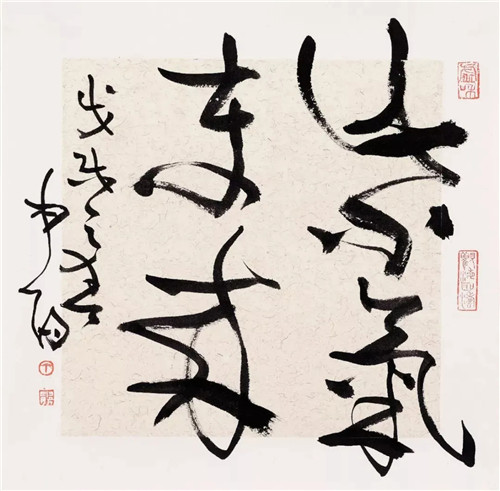 紫氣
東來
戊戌之春